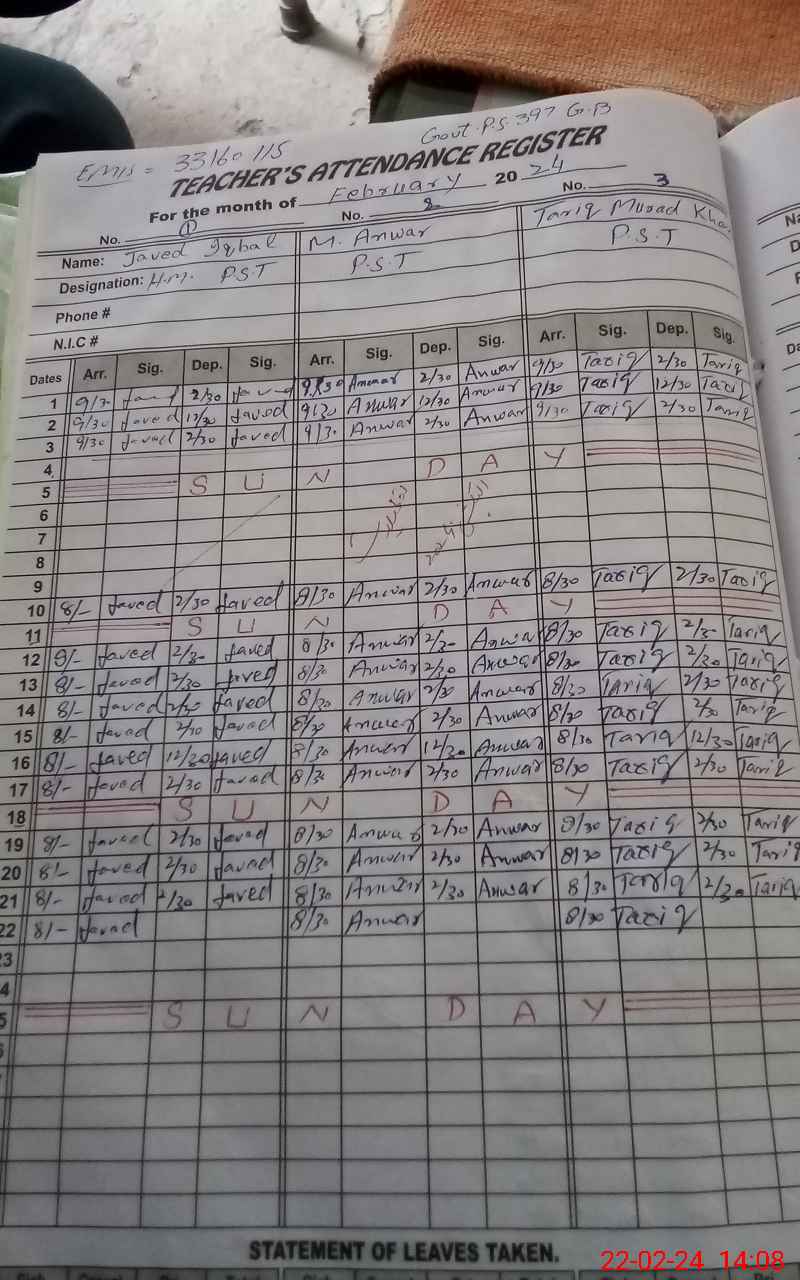 Govt. P.S. 397 G.B
EMIS = 33160115
TEACHER'S ATTENDANCE REGISTER
For the month of February 2024
No. (1) No. 2 No. 3
Name: Javed Iqbal M. Anwar Tariq Murad Kha
Designation: H.M. P.S.T P.S.T P.S.T
Phone #
N.I.C #
Dates Arr. Sig. Dep. Sig. Arr. Sig. Dep. Sig. Arr. Sig. Dep. Sig.
1 9/30 Javed 2/30 Javed 9/30 Anwar 2/30 Anwar 9/30 Tariq 2/30 Tariq
2 9/30 Javed 12/30 Javed 9/30 Anwar 12/30 Anwar 9/30 Tariq 12/30 Tariq
3 9/30 Javed 2/30 Javed 9/30 Anwar 2/30 Anwar 9/30 Tariq 2/30 Tariq
4 S U N D A Y
5
6
7
8
9
10 8/- Javed 2/30 Javed 8/30 Anwar 2/30 Anwar 8/30 Tariq 2/30 Tariq
11 S U N D A Y
12 8/- Javed 2/30 Javed 8/30 Anwar 2/30 Anwar 8/30 Tariq 2/30 Tariq
13 8/- Javed 2/30 Javed 8/30 Anwar 2/30 Anwar 8/30 Tariq 2/30 Tariq
14 8/- Javed 2/30 Javed 8/30 Anwar 2/30 Anwar 8/30 Tariq 2/30 Tariq
15 8/- Javed 2/30 Javed 8/30 Anwar 2/30 Anwar 8/30 Tariq 2/30 Tariq
16 8/- Javed 12/30 Javed 8/30 Anwar 12/30 Anwar 8/30 Tariq 12/30 Tariq
17 8/- Javed 2/30 Javed 8/30 Anwar 2/30 Anwar 8/30 Tariq 2/30 Tariq
18 S U N D A Y
19 8/- Javed 2/30 Javed 8/30 Anwar 2/30 Anwar 8/30 Tariq 2/30 Tariq
20 8/- Javed 2/30 Javed 8/30 Anwar 2/30 Anwar 8/30 Tariq 2/30 Tariq
21 8/- Javed 2/30 Javed 8/30 Anwar 2/30 Anwar 8/30 Tariq 2/30 Tariq
22 8/- Javed 8/30 Anwar 8/30 Tariq
23
4
5 S U N D A Y
STATEMENT OF LEAVES TAKEN.
22-02-24 14:08